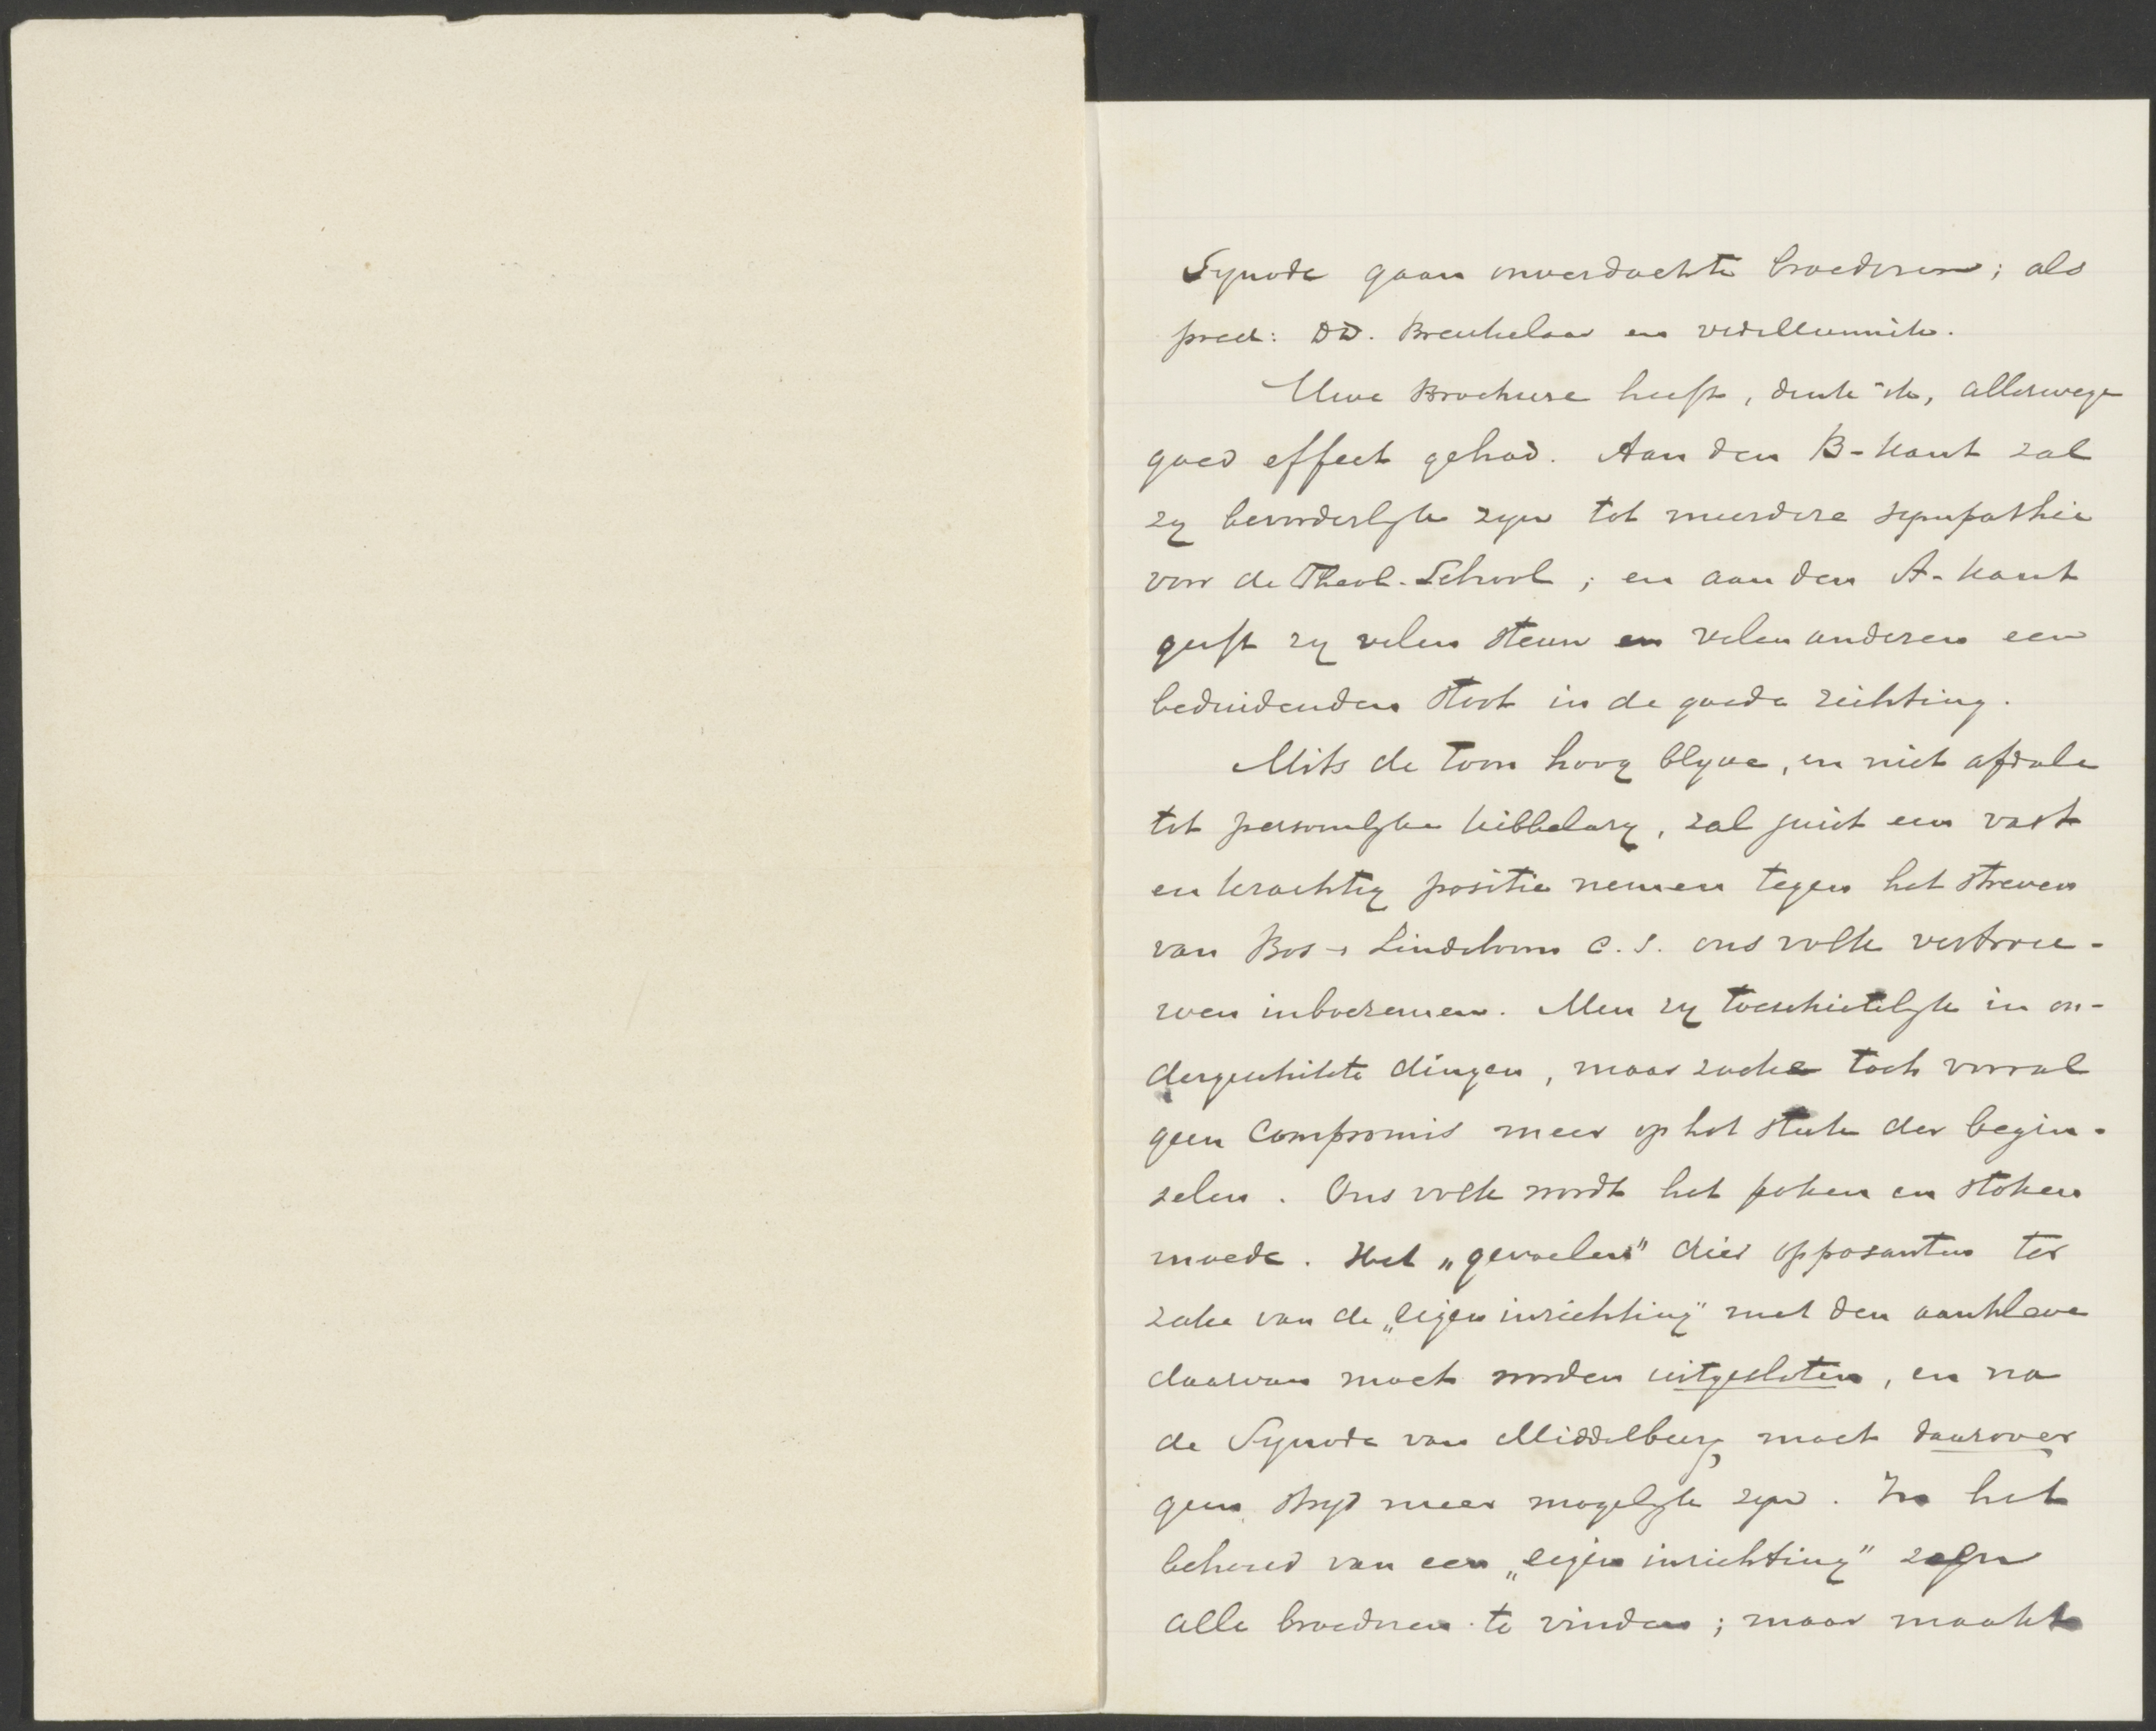 Synode gaan onverdachte broederen; als
praed: DD. Breukelaar en
Uwe Brochure heeft, denk ik, allerwege
goed effect gehad. Aan den B-kant zal
zy bevorderlyk zyn tot meerdere sympathie
voor de Theol. School; en aan den A-kant
geeft zy velen steun en velen anderen een
beduidenden stoot in de goede richting.
Mits de toon hoog blyve, en niet afdale
tot persoonlyke kibbelary, zal juist een vast
en krachtig positie nemen tegen het streven
van Bos & Lindeboom c.s. ons volk vertrou-
wen inboezemen. Men zy toeschietelyk in on-
dergeschikte dingen, maar zoeke toch vooral
geen compromis meer op het stuk der begin-
selen. Ons volk wordt het poken en stoken
moede. Het „gevoelen" dier opposanten ter
zake van de „eigen inrichting" met den aankleve
daarvan moet worden uitgesloten, en na
de Synode van Middelburg moet daarover
geen stryd meer mogelyk zyn. In het
behoud van een „eigen inrichting" zyn
alle broederen te vinden; maar maakt